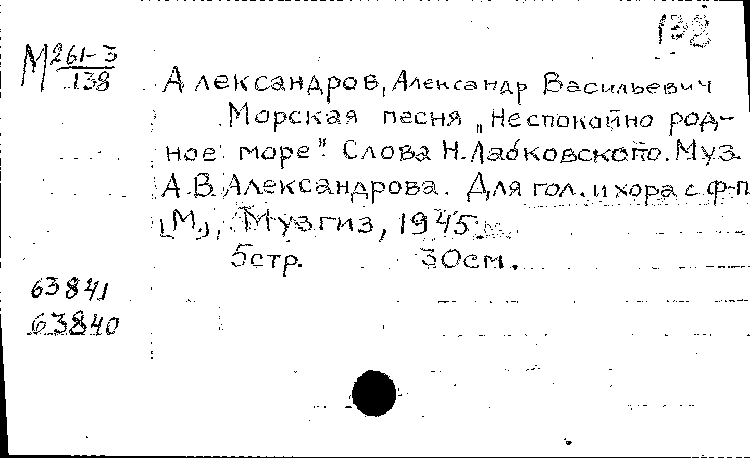 138
М 261-3
138
Александров, Александр Васильевич
Морская песня „Неспокойно род-
ное море". Слова Н. Лабковского. Муз.
А.В. Александрова. Для гол. и хора с ф-п
[М.], Музгиз, 1945
5стр. 30см.
63841
63840